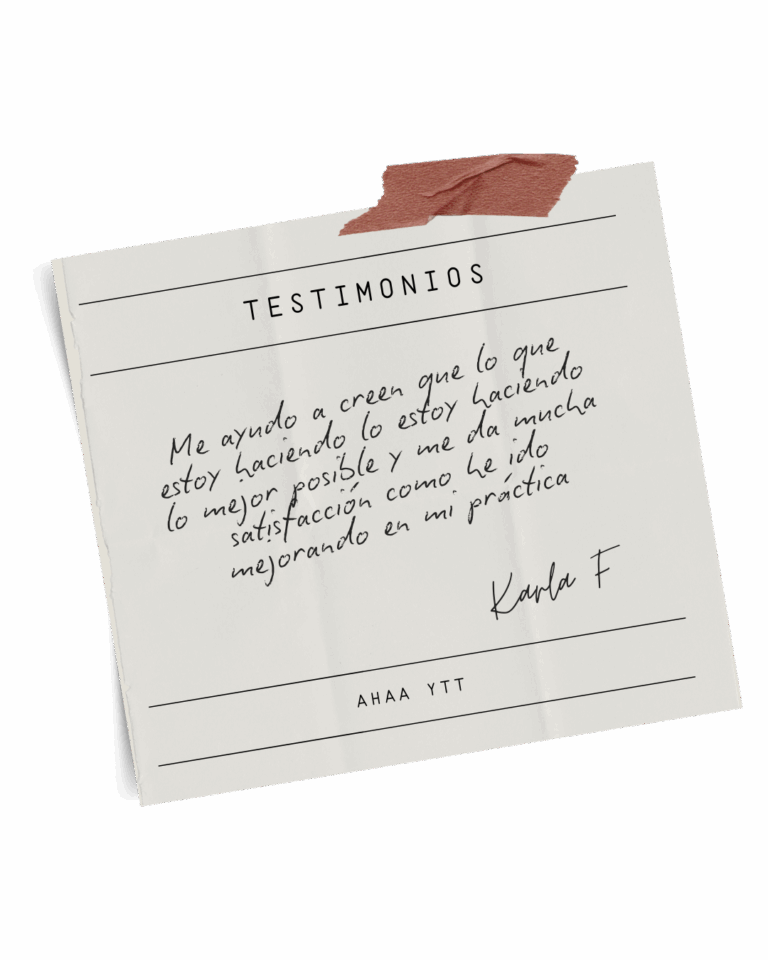 TESTIMONIOS
Me ayudo a creen que lo que
estoy haciendo lo estoy haciendo
lo mejor posible y me da mucha
satisfacción como he ido
mejorando en mi práctica
Karla F
AHAA YTT